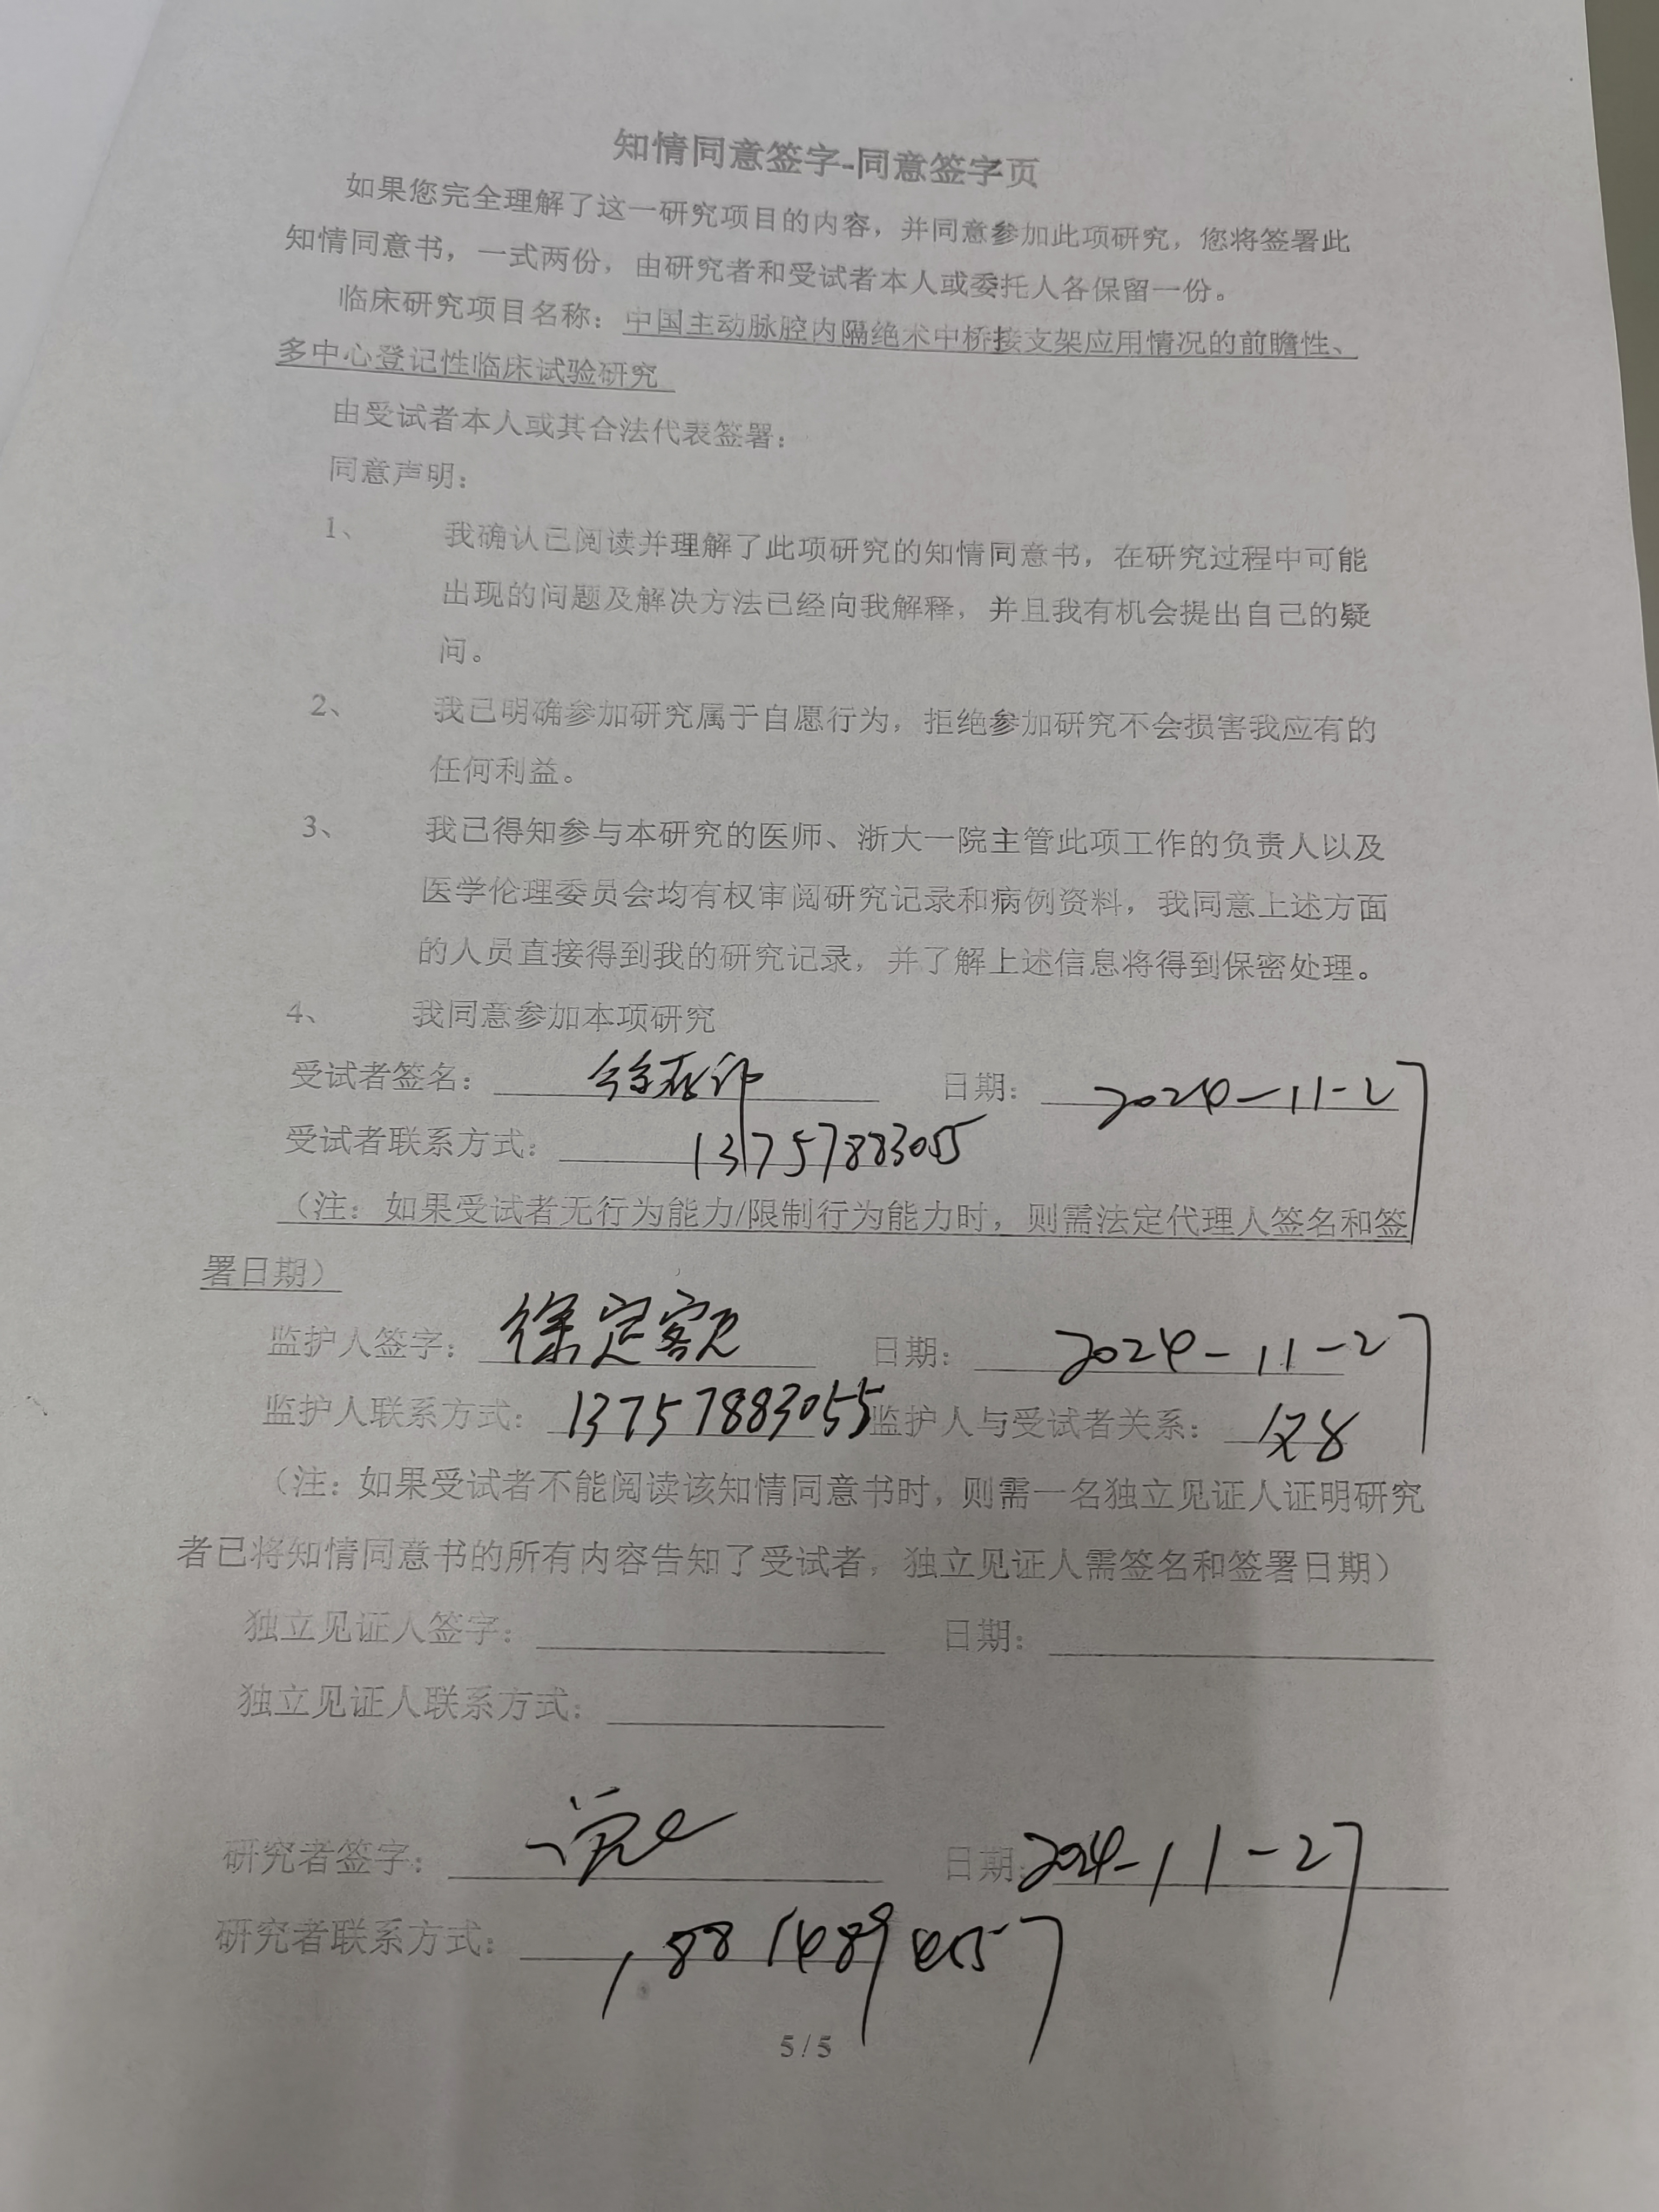 知情同意签字-同意签字页
如果您完全理解了这一研究项目的内容，并同意参加此项研究，您将签署此
知情同意书，一式两份，由研究者和受试者本人或委托人各保留一份。
临床研究项目名称：中国主动脉腔内隔绝术中桥接支架应用情况的前瞻性、
多中心登记性临床试验研究
由受试者本人或其合法代表签署：
同意声明：
1、 我确认已阅读并理解了此项研究的知情同意书，在研究过程中可能
出现的问题及解决方法已经向我解释，并且我有机会提出自己的疑
问。
2、 我已明确参加研究属于自愿行为，拒绝参加研究不会损害我应有的
任何利益。
3、 我已得知参与本研究的医师、浙大一院主管此项工作的负责人以及
医学伦理委员会均有权审阅研究记录和病例资料，我同意上述方面
的人员直接得到我的研究记录，并了解上述信息将得到保密处理。
4、 我同意参加本项研究
受试者签名： 日期：2024-11-27
受试者联系方式：13757883055
（注：如果受试者无行为能力/限制行为能力时，则需法定代理人签名和签
署日期）
监护人签字：徐定额 日期：2024-11-27
监护人联系方式：13757883055 监护人与受试者关系：
（注：如果受试者不能阅读该知情同意书时，则需一名独立见证人证明研究
者已将知情同意书的所有内容告知了受试者，独立见证人需签名和签署日期）
独立见证人签字： 日期：
独立见证人联系方式：
研究者签字： 日期：2024-11-27
研究者联系方式：18814894557
5 / 5